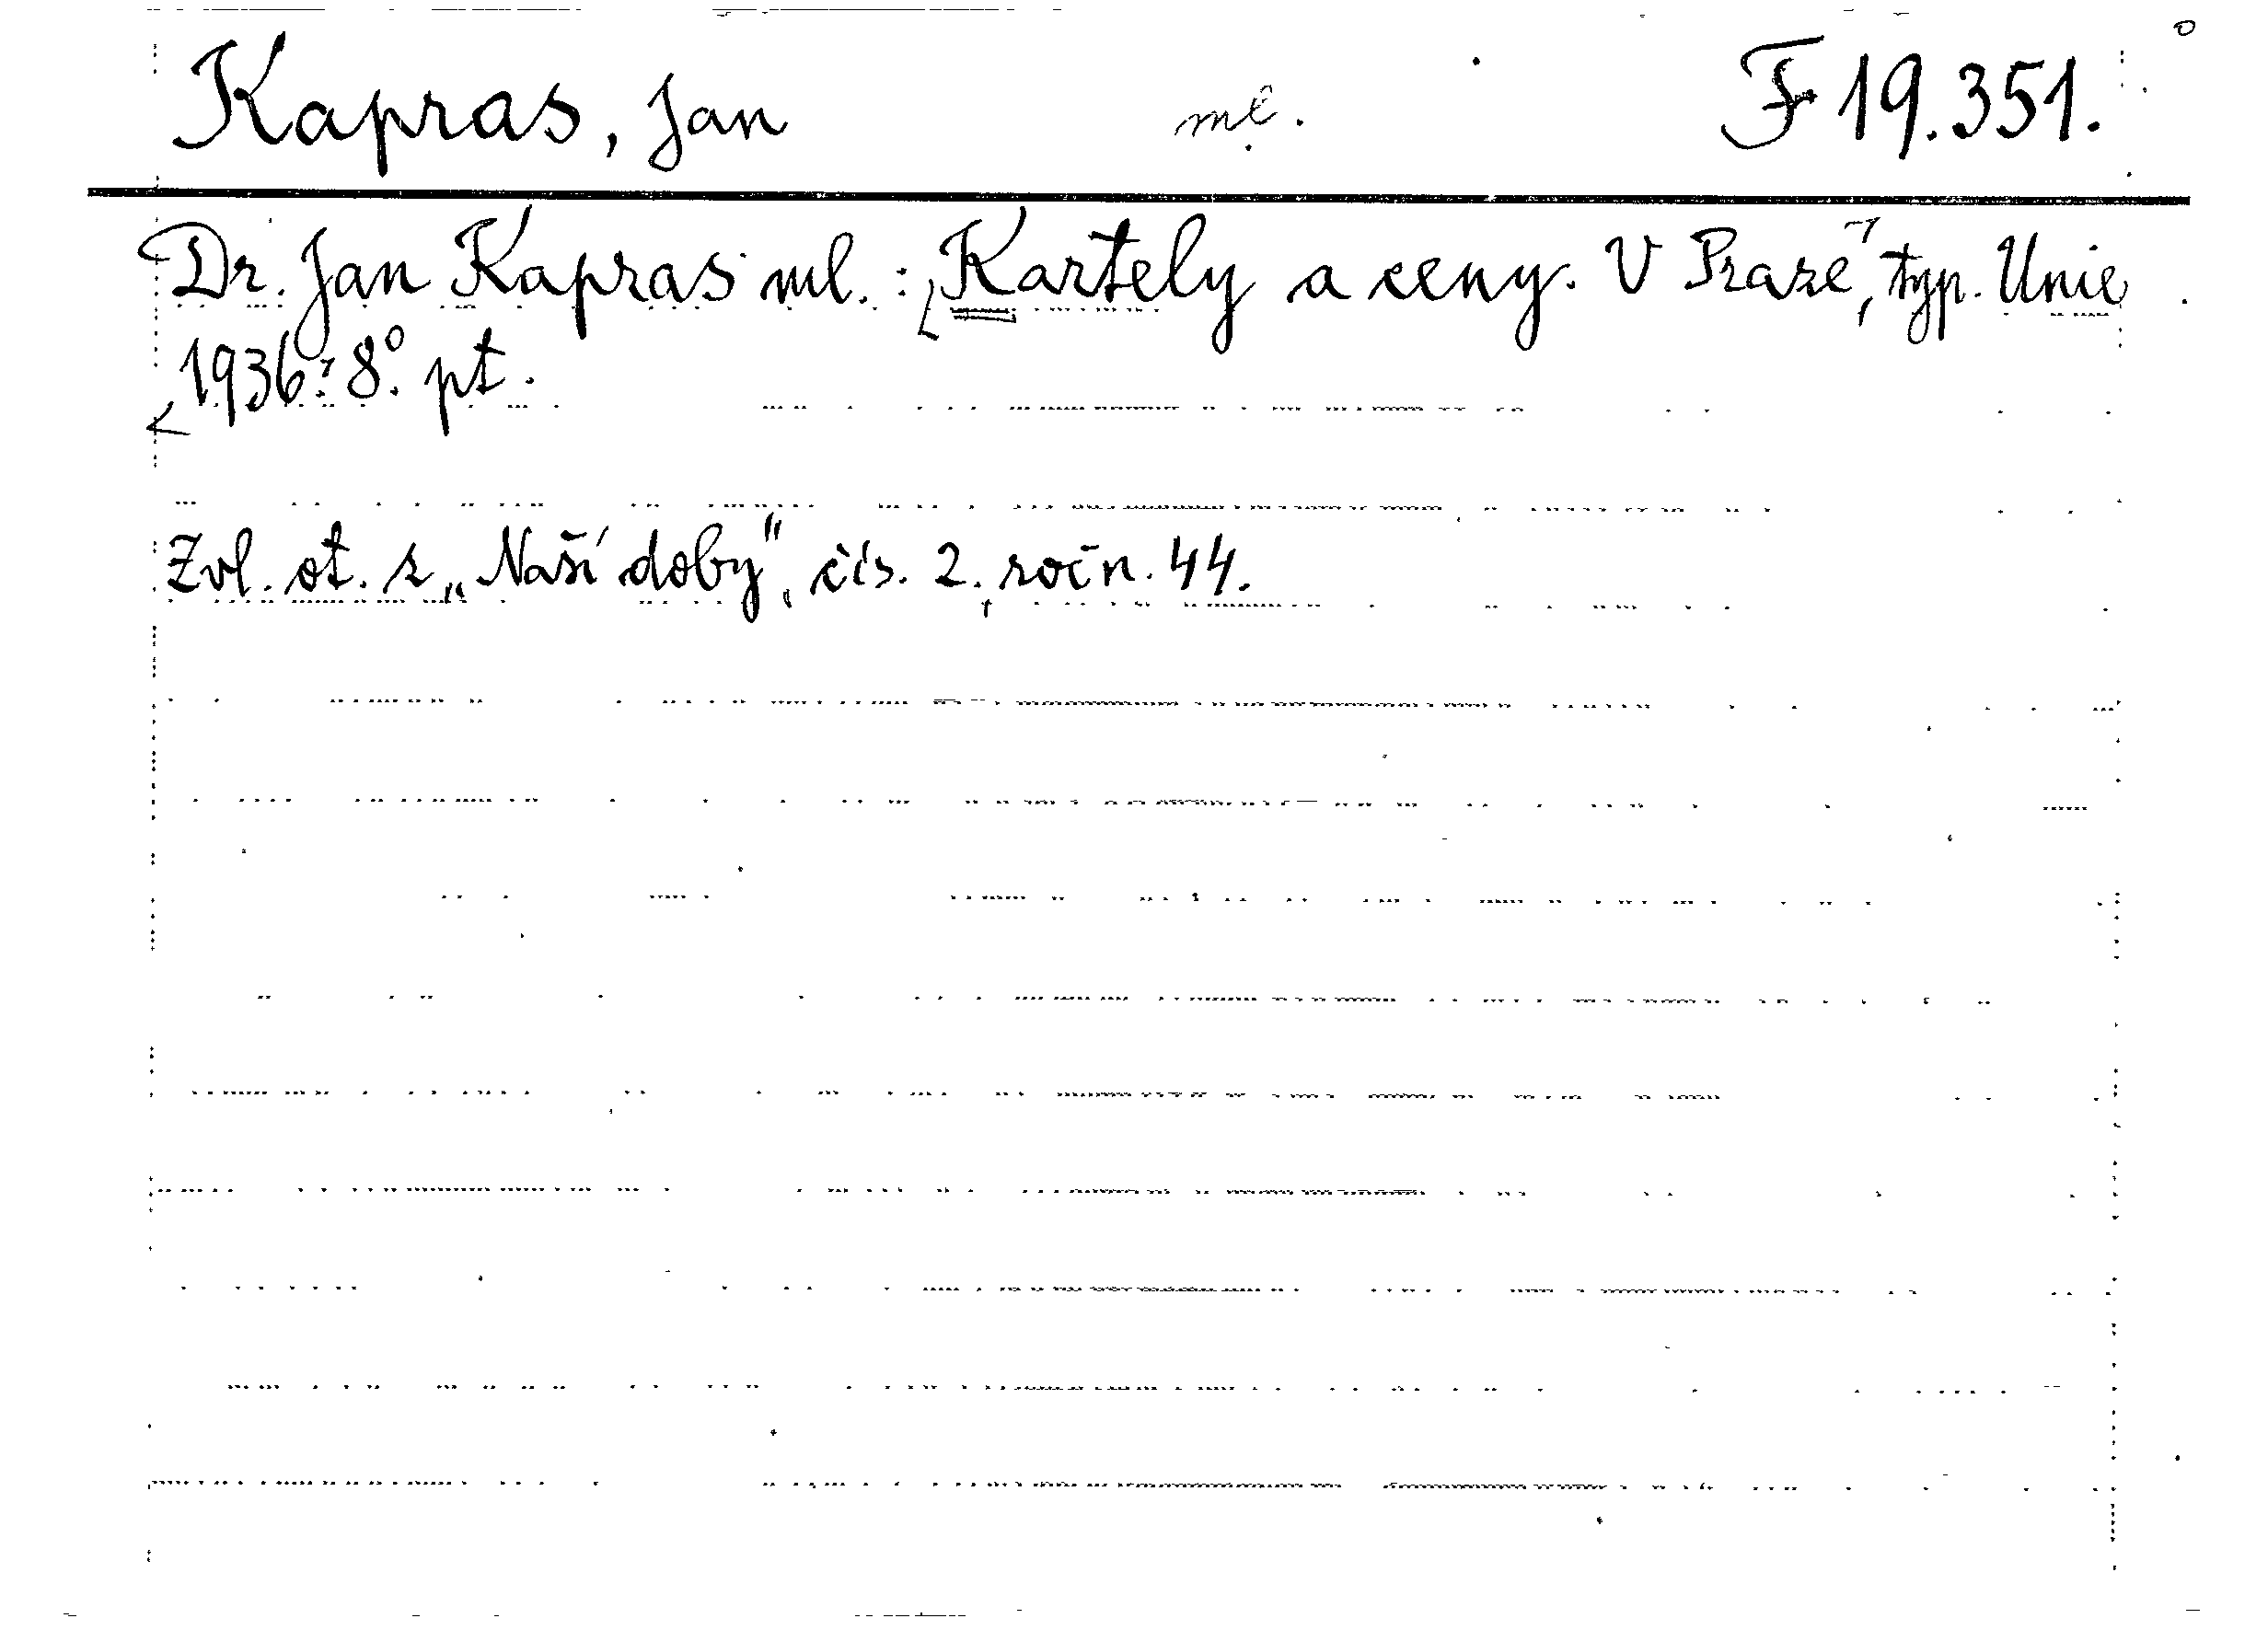 Kapras, Jan ml. F 19.351.
Dr. Jan Kapras ml.: Kartely a ceny. V Praze, typ. Unie
1936. 8°. pt.
Zvl. ot. z „Naší doby", čís. 2, ročn. 44.